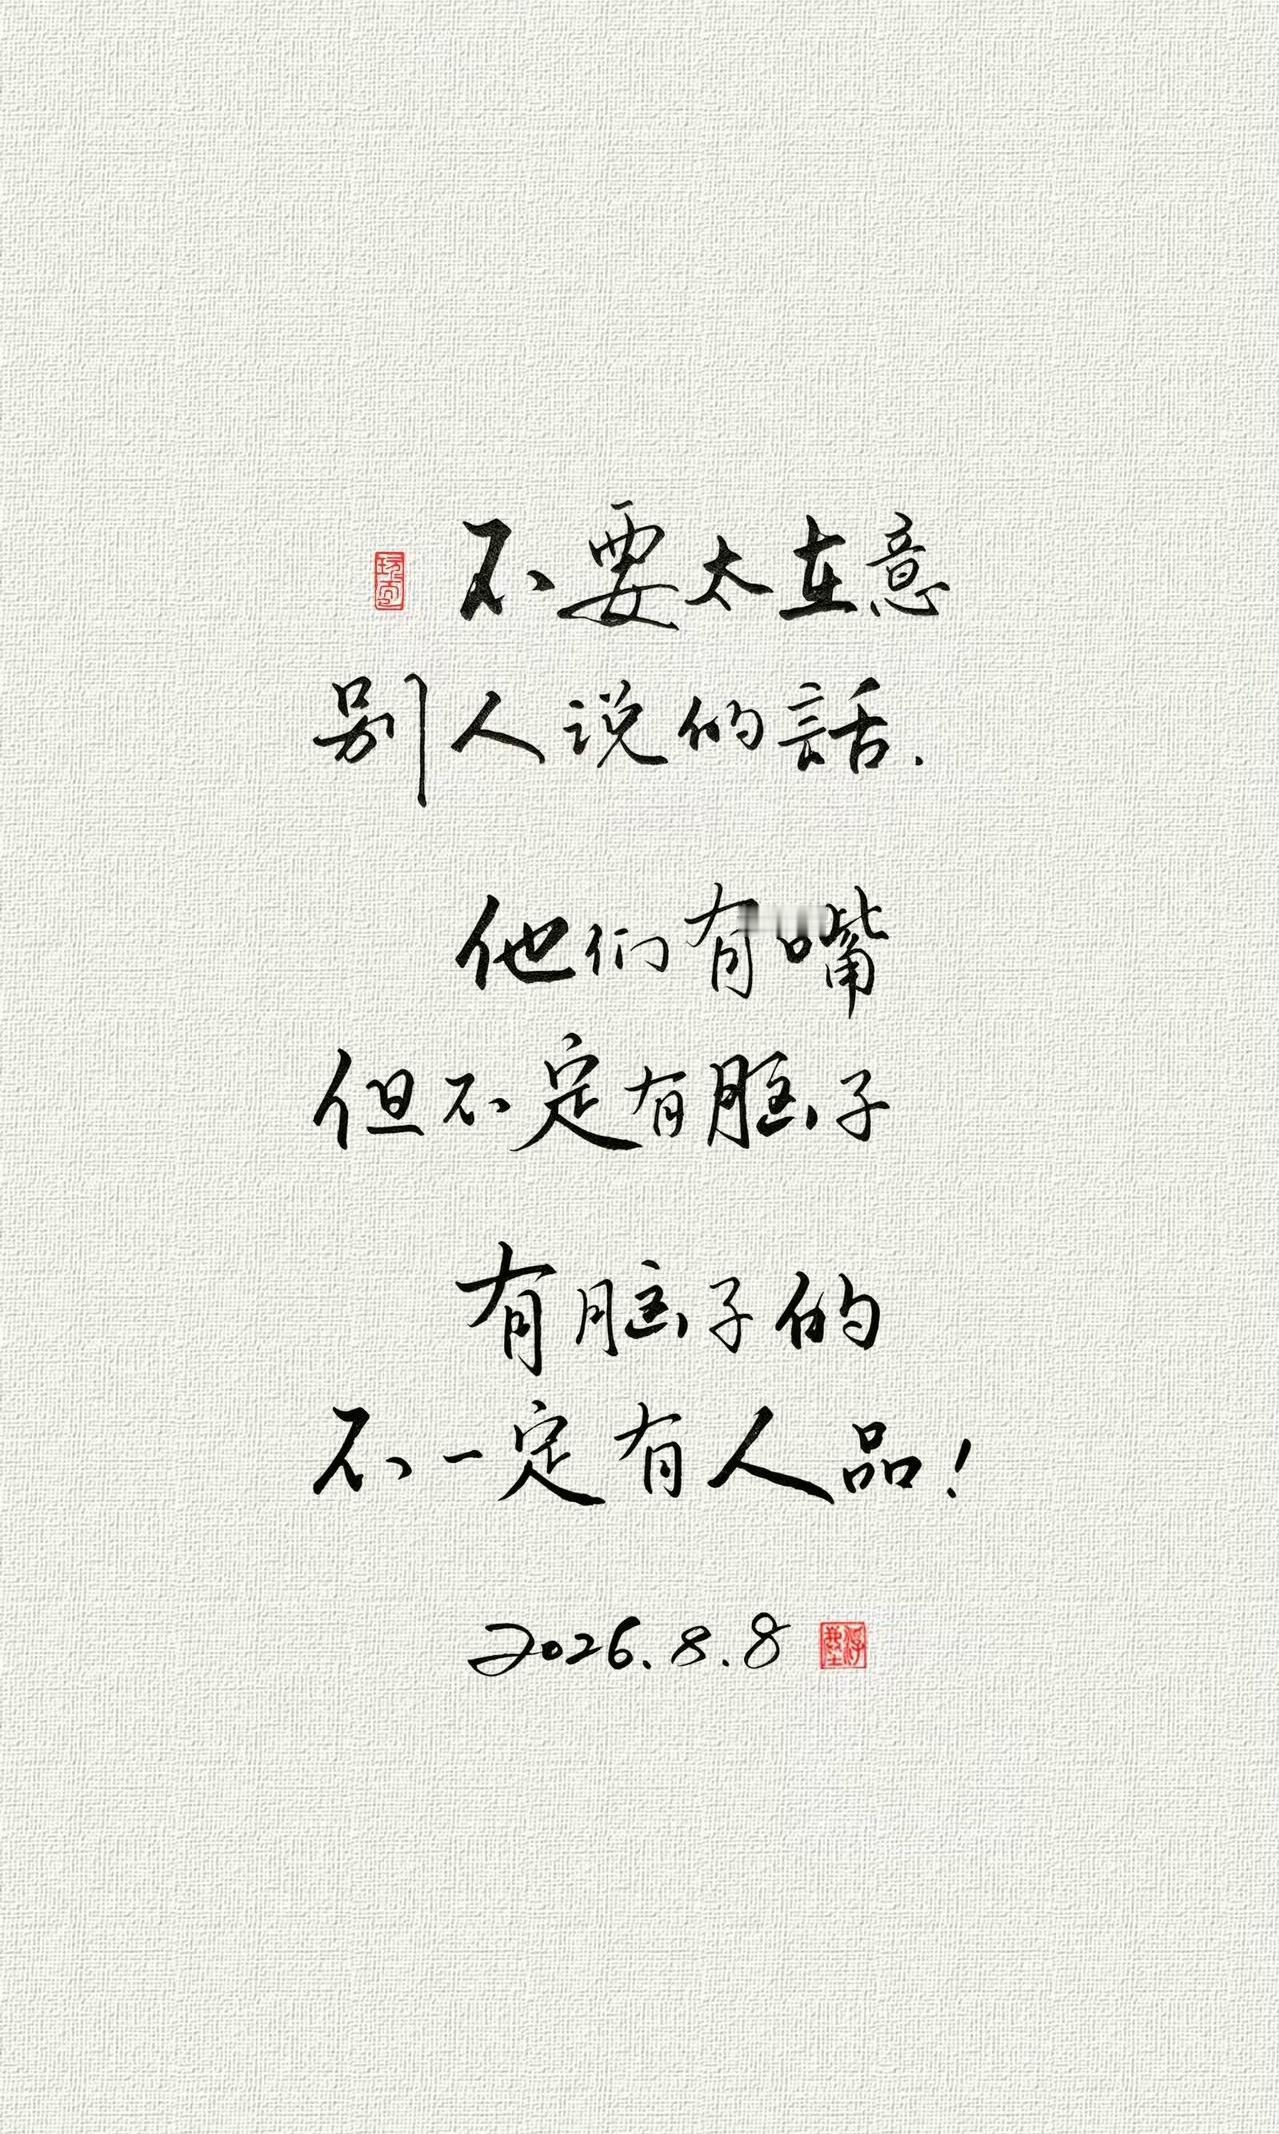 不要太在意
别人说的話.
他们有嘴
但不定有脑子
有脑子的
不一定有人品!
2026.8.8